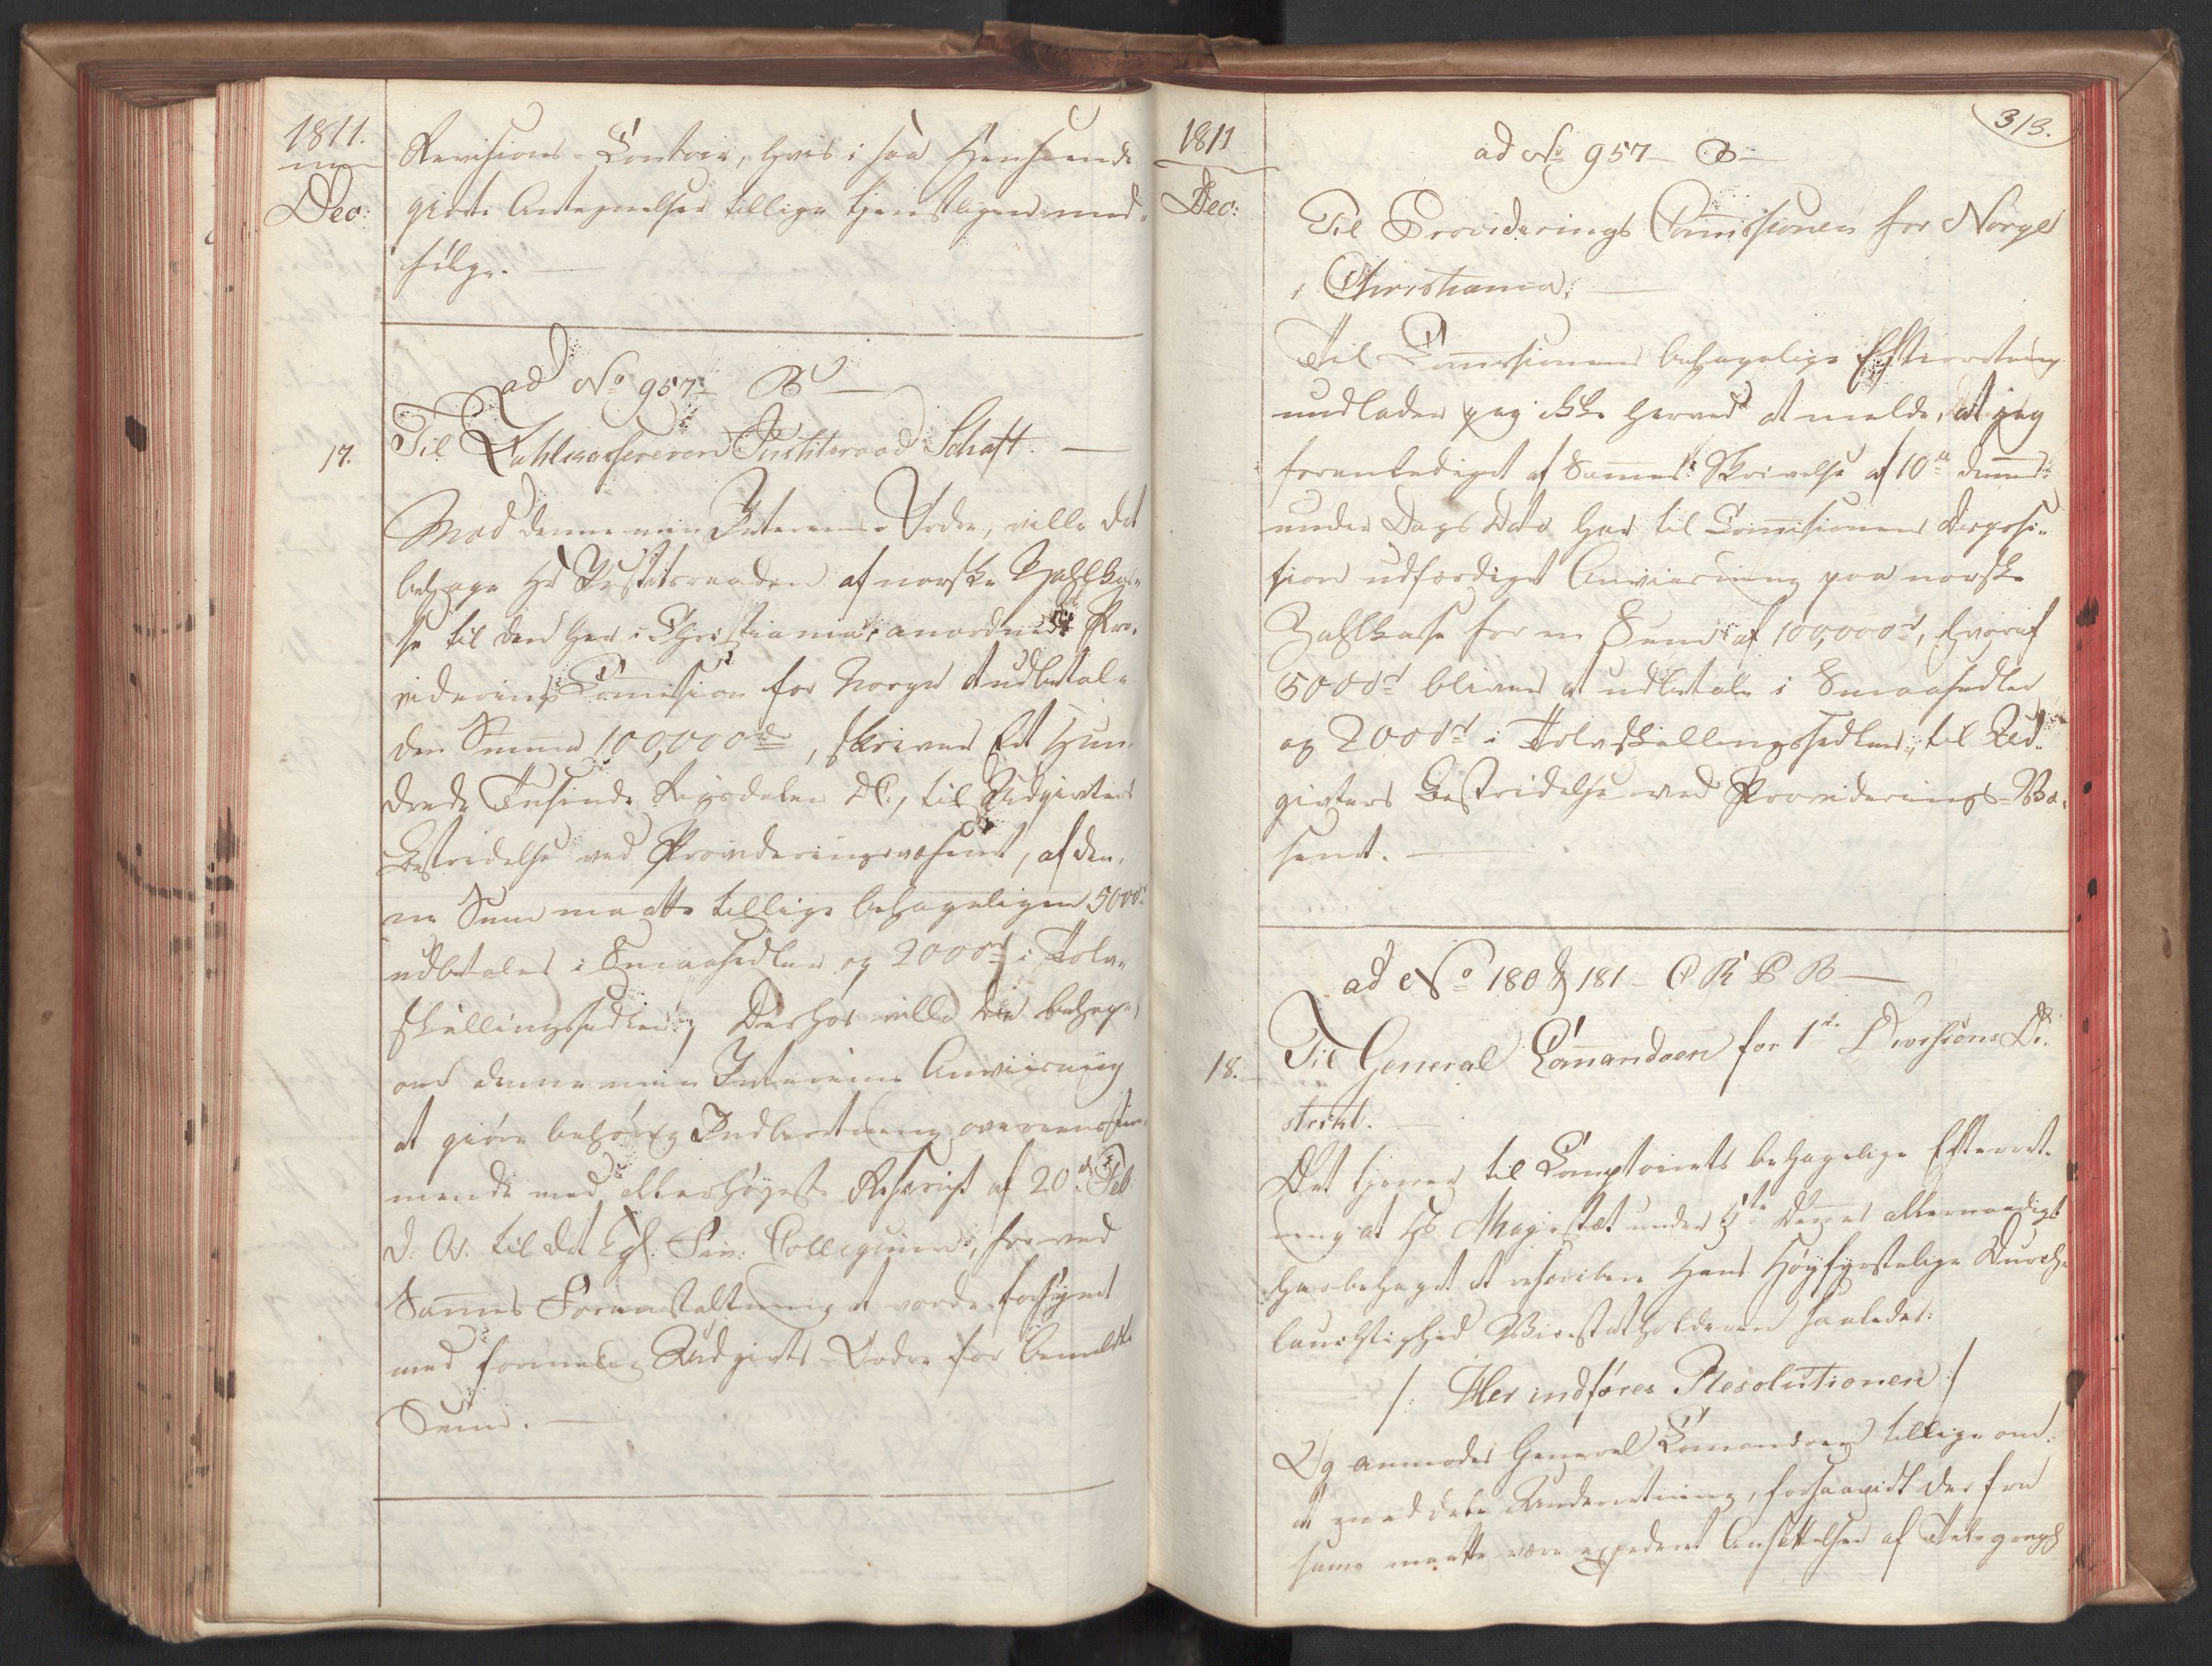 1811.
Dec:
Revisions-Contoir, hvis i saa Henseende
giorte Antegnelser tillige tienstligen med¬
følge.
ad No 957 B
17.
Til Zahlcasserer Justitsraad Schaft.
Mod denne min Interims-Ordre, ville det
behage Hr Justitsraaden af norske Zahlkas¬
se til den her i Christiania anordnede Pro¬
viderings Commission for Norge at udbetale
den Summa 100,000 rd, skriver Et Hun¬
drede Tusinde Rigsdaler DC., til Udgivters
Bestridelse ved Provideringsvæsenet, af den¬
ne Sum maatte tillige behageligen 5000 rd
udbetales i Smaasedler og 2000 rd i Tolv¬
skillingssedler; Derhos ville De behage,
om denne min Interims Anviisning
at giøre behørig Indberetning overeenstem¬
mende med allerhøyeste Rescript af 20de Feb:
d. A. til det Kgl: Fin: Collegium, for ved
Sammes Foranstaltning at vorde forsynet
med formelig Udgivts-Ordre for bemeldte
Sum.
1811
Dec:
313.
ad No 957 B
Til Providerings Commissionen for Norge
i Christiania.
Til Commissionens behagelige Efterretning
undlader jeg ikke herved at melde, at jeg
foranlediget af Sammes Skrivelse af 10de dennes
under Dags Dato har til Commissionens Disposi¬
tion udfærdiget Anviisning paa norske
Zahlkasse for en Sum af 100,000 rd, hvoraf
5000 rd bliver at udbetale i Smaasedler
og 2000 rd i Tolvskillingssedler, til Ud¬
givters Bestridelse ved Providerings-Væ¬
senet.
ad No 180 & 181 C R P B
18.
Til General Commandoen for 1te Divisions Di¬
strikt.
Det tiener til Comptoirets behagelige Efterret¬
ning at Hs Majestæt under 5te Dennes allernaadigst
har behaget at rescribere Hans Høyfyrstelige Durch¬
lauchtighed Vicestatholderen saaledes:
/: Her indføres Resolutionen :/
Og anmodes General Commandoen tillige om
at meddele Underretning, forsaavidt der fra
samme maatte være expederet Ansættelser af Telegraph